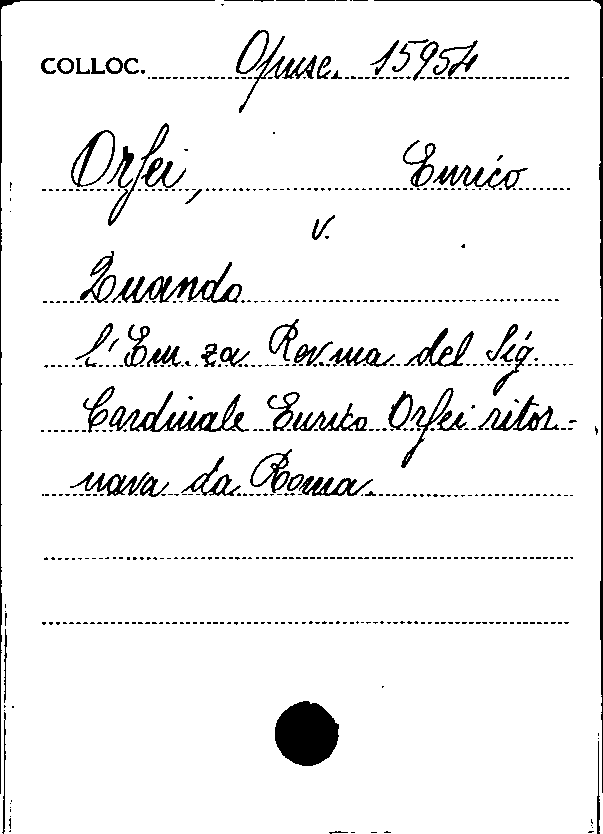 COLLOC. Opusc. 15954
Orfei, Enrico
v.
Quando
l'Em.za Rev.ma del Sig.
Cardinale Enrico Orfei ritor-
nava da Roma.